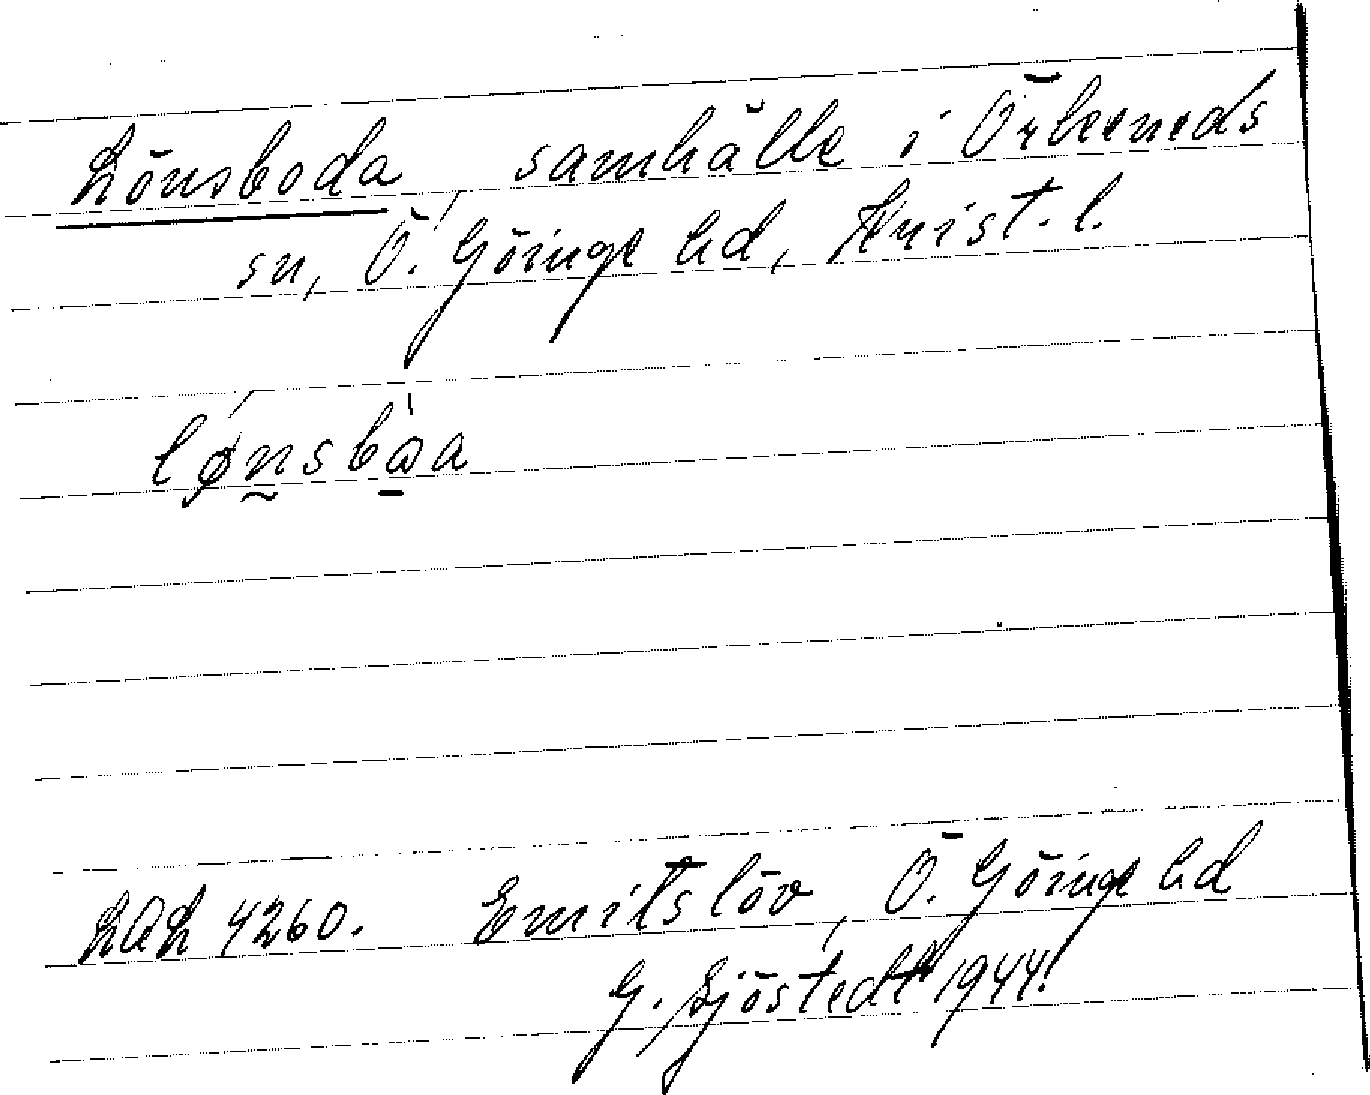 Lönsboda samhälle i Örkeneds
sn, Ö. Göinge hd, Krist. l.
lǿn̰sbɷ̠̀a
LAL 4260. Emitslöv, Ö. Göinge hd
G. Sjöstedt 1944.